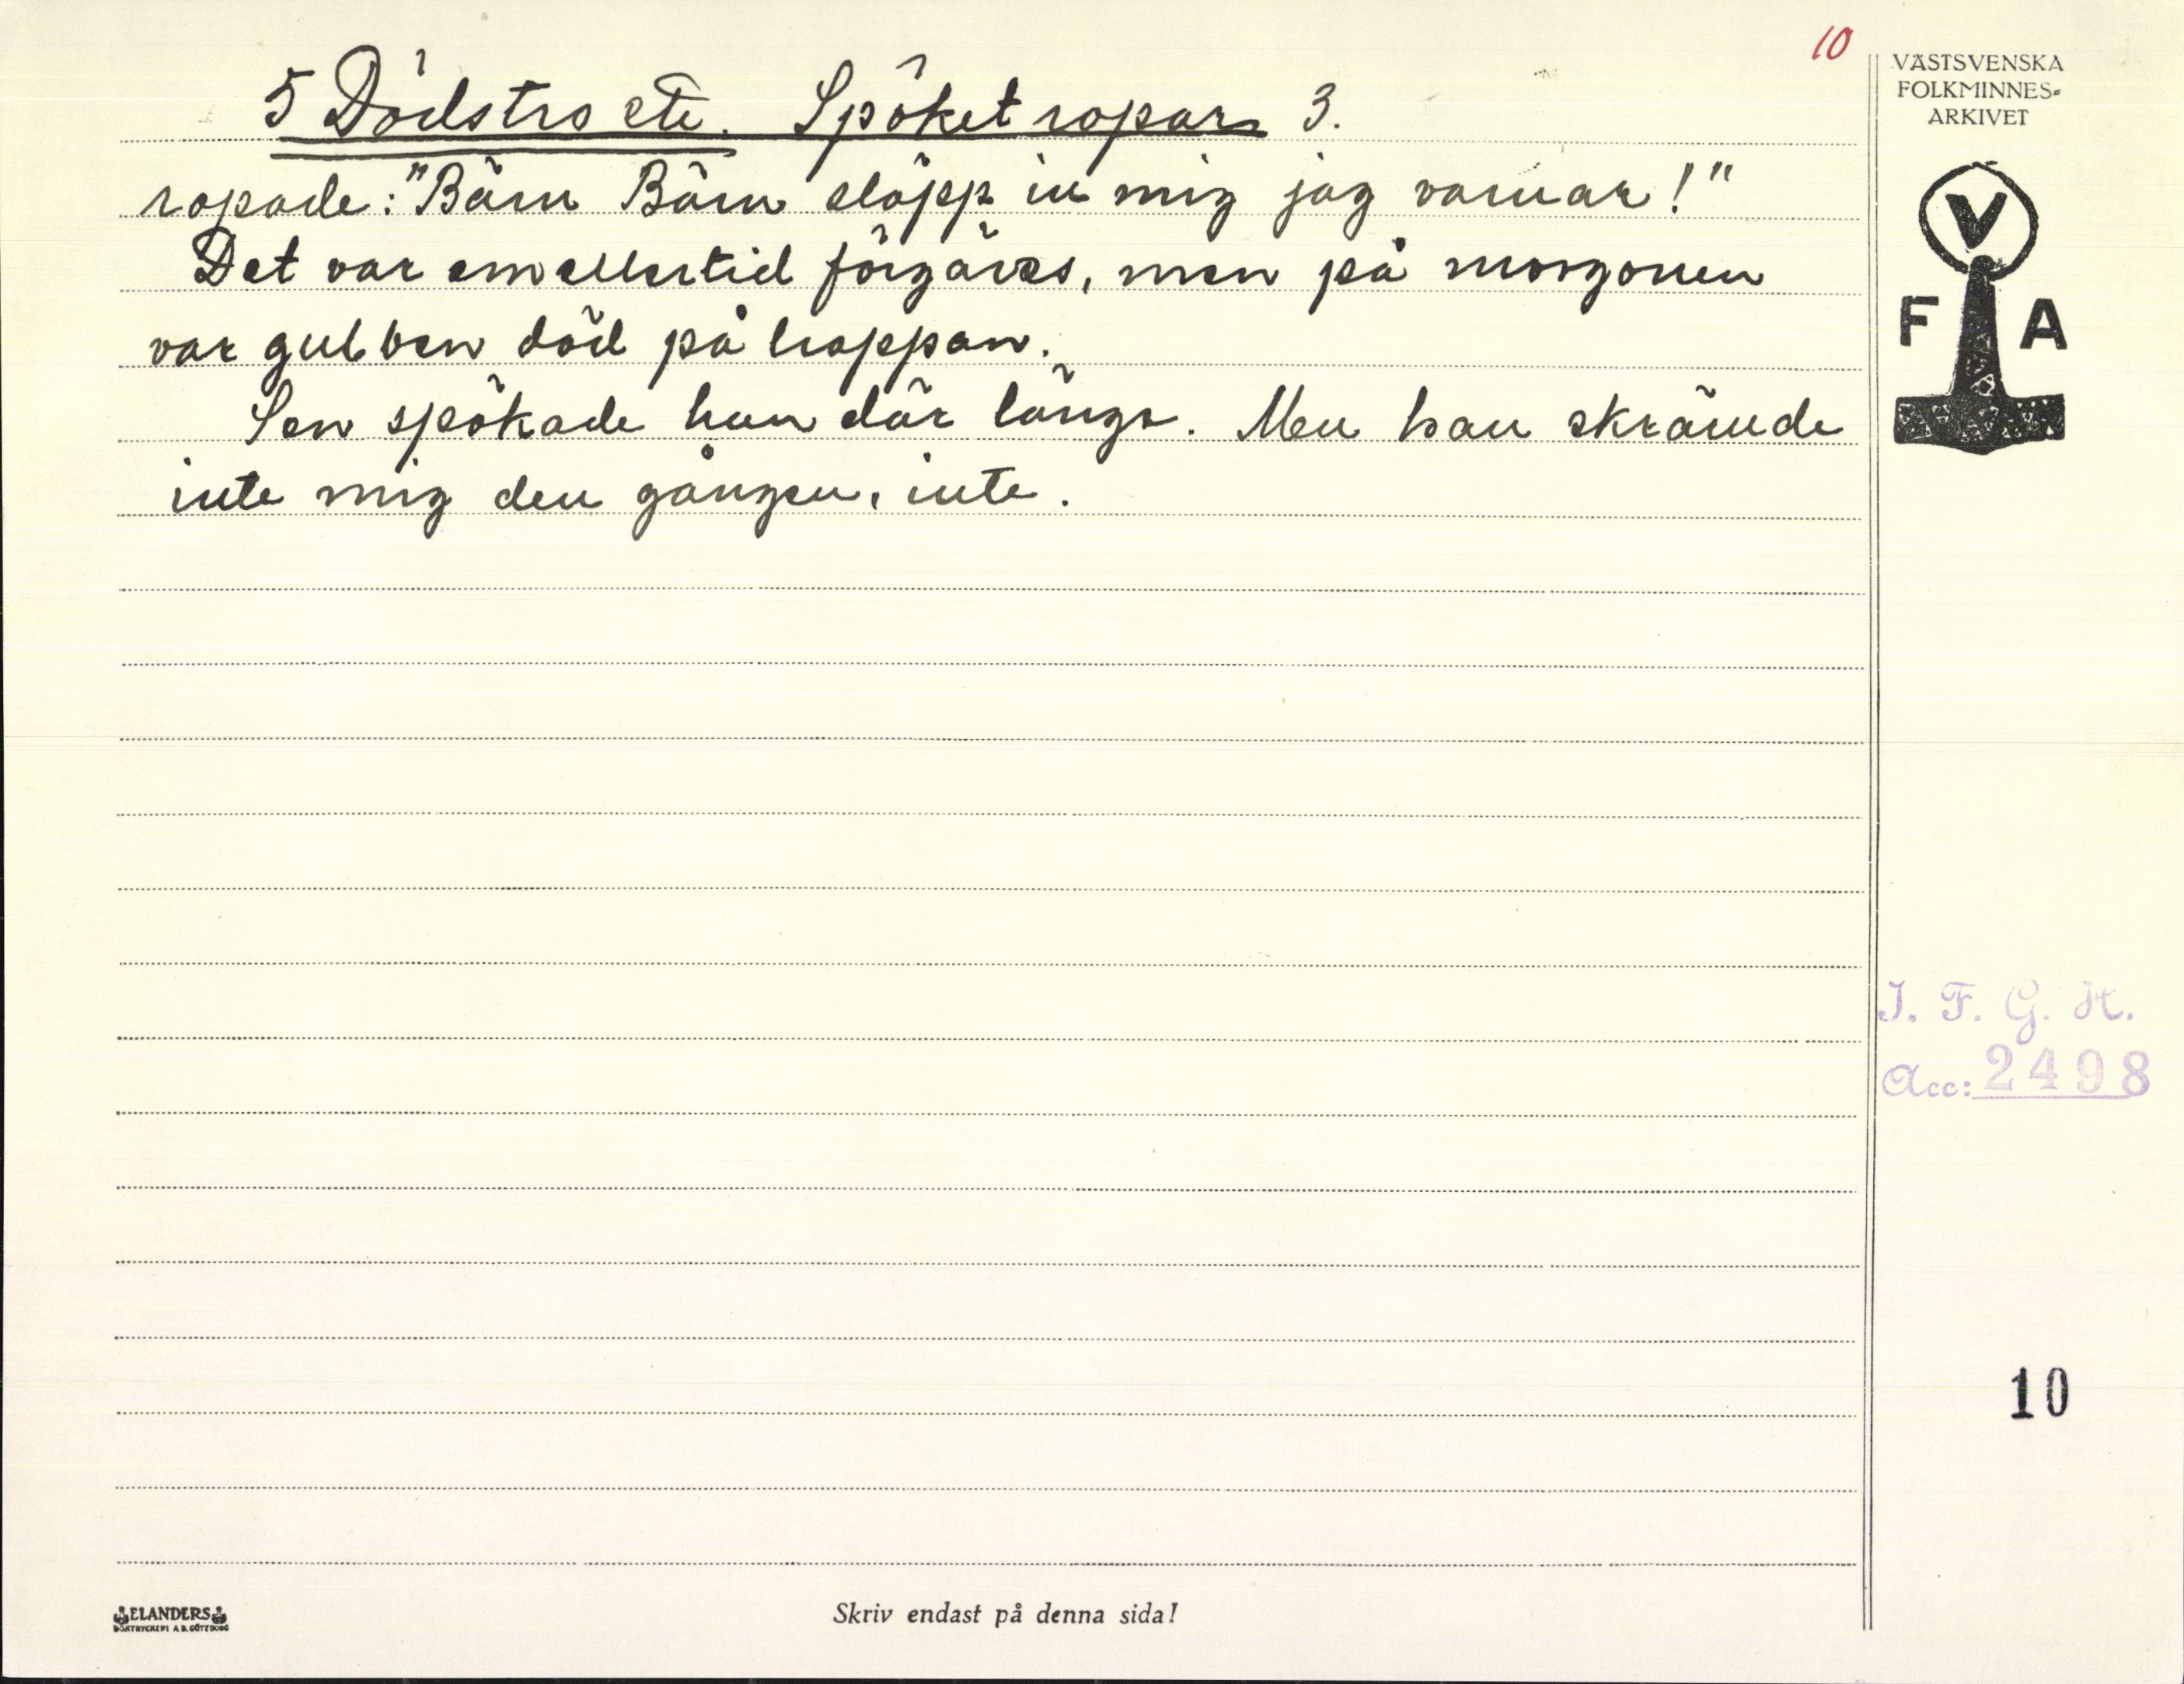 10
5 Dödstro etc. Spöket ropar 3.
ropade: "Bärn Bärn släpp in mig jag varnar!"
Det var emellertid förgäves, men på morgonen
var gubben död på trappan.
Sen spökade han där länge. Men han skrämde
inte mig den gången, inte.
VÄSTSVENSKA
FOLKMINNES-
ARKIVET
V
F A
I. F. G. H.
Acc: 2498
10
ELANDERS
BOKTRYCKERI A.B. GÖTEBORG
Skriv endast på denna sida!